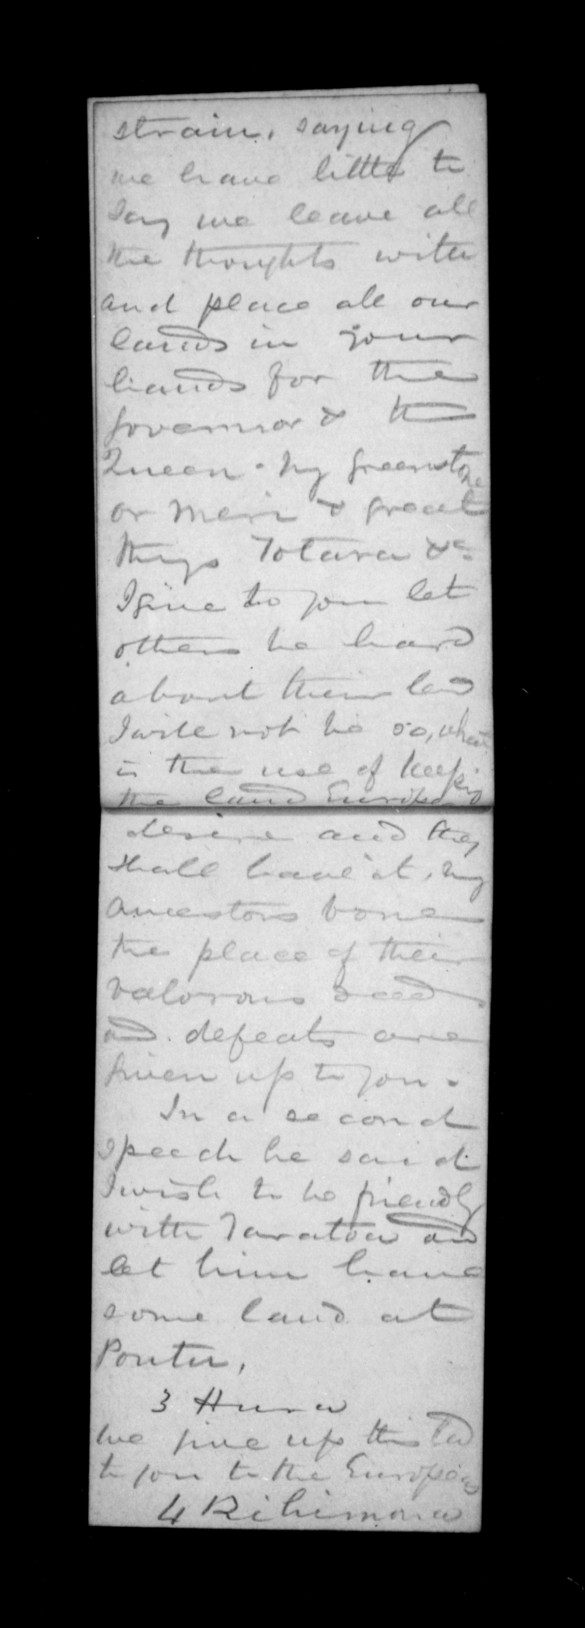 strain, saying
we have little to
say we leave all
the thoughts with
and place all our
lands in your
hands for the
Governor & the
Queen. My greenstone
or Meri & great
things Totara &c
I give to you let
others be hard
about their land
I will not be so, what
is the use of keeping
the land Europeans
desire and they
shall have it, my
ancestors bones
the place of their
valorous deeds
and defeats are
given up to you.
In a second
speech he said
I wish to be friendly
with Taratoa and
let him have
some land at
Poutu,
3 Hura
we give up this land
to you to the Europeans
4 Rihimona